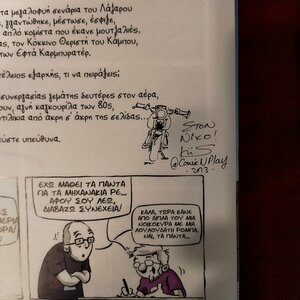 τα μεγαλοφυή σενάρια του Λάζαρου
, γιγαντώθηκε, μέστωσε, έσφιξε,
απλό κομίστα που έκανε μουτζαλιές,
ας, τον Κόκκινο Θεριστή του Κάμπου,
των Εφτά Καρμπυρατέρ.
τέλειος εξαρχής, τι να πειράξεις;
συνεργασίας γεμάτης δευτέρες στον αέρα,
ουν, αγνή καγκουρίλα των 80s,
τίλικια από άκρη σ' άκρη της σελίδας...
εύστε υπεύθυνα.
ΣΤΟΝ
ΝΙΚΟ!
@ComicNPlay
2013
ΕΧΩ ΜΑΘΕΙ ΤΑ ΠΑΝΤΑ
ΓΙΑ ΤΗ ΜΗΧΑΝΑΚΙΑ ΡΕ...
ΑΦΟΥ ΣΟΥ ΛΕΩ,
ΔΙΑΒΑΖΩ ΣΥΝΕΧΕΙΑ!
ΚΑΛΑ, ΤΩΡΑ ΚΑΝΕ
ΑΠΟ ΔΙΠΛΑ ΤΟΥ ΜΙΑ
ΝΟΙΚΟΚΥΡΑ ΜΕ ΜΙΑ
ΛΟΥΛΟΥΔΑΤΗ ΡΟΜΠΑ,
ΝΑΙ, ΤΑ ΠΑΝΤΑ...